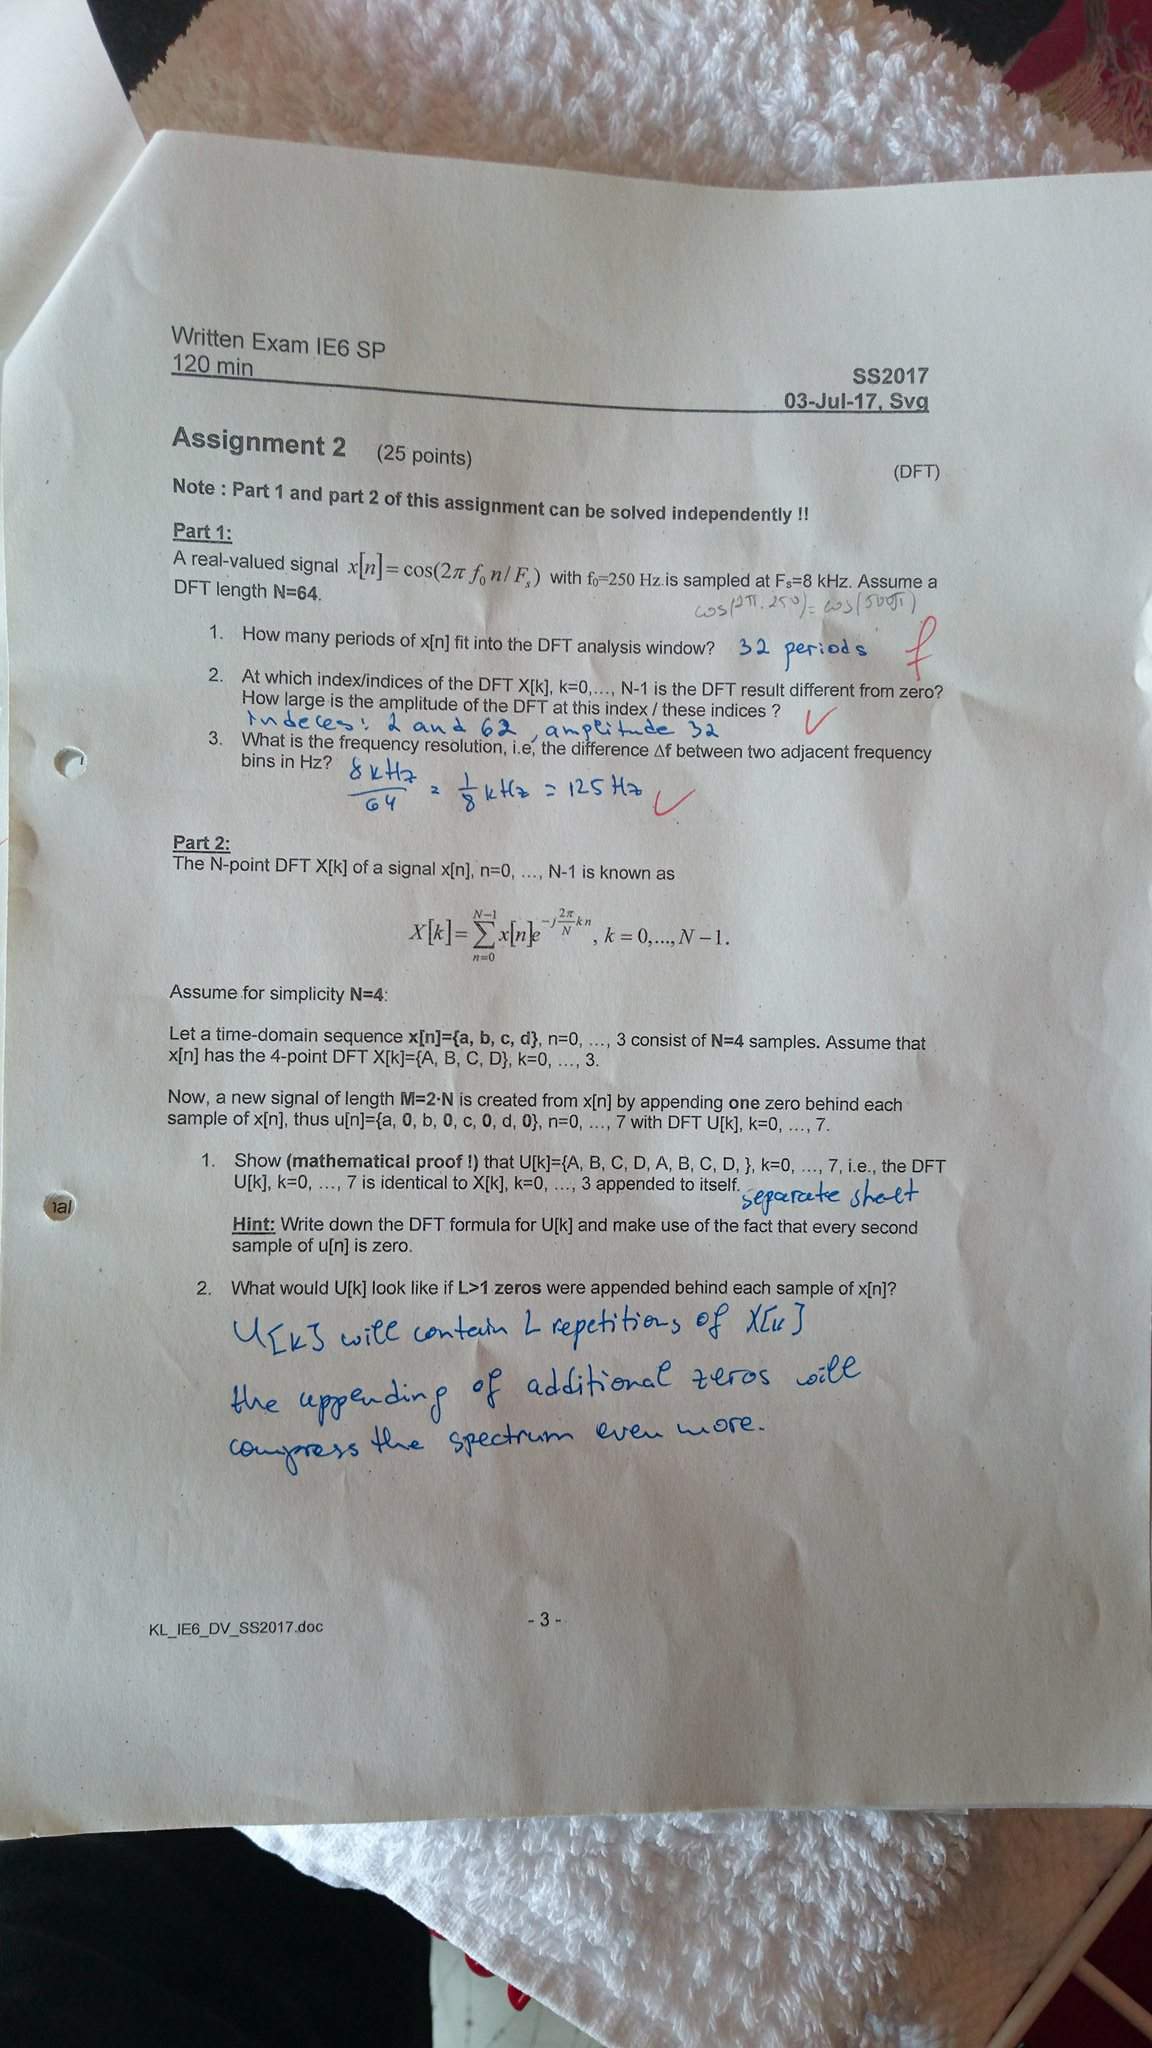 Written Exam IE6 SP
120 min
SS2017
03-Jul-17, Svg
Assignment 2 (25 points)
(DFT)
Note : Part 1 and part 2 of this assignment can be solved independently !!
Part 1:
A real-valued signal x[n]=cos(2π f₀ n/Fₛ) with f₀=250 Hz is sampled at Fₛ=8 kHz. Assume a
DFT length N=64.
cos(2π.250)=cos(500π)
1. How many periods of x[n] fit into the DFT analysis window? 32 periods f
2. At which index/indices of the DFT X[k], k=0,..., N-1 is the DFT result different from zero?
How large is the amplitude of the DFT at this index / these indices ?
indeces: 2 and 62, amplitude 32
3. What is the frequency resolution, i.e, the difference Δf between two adjacent frequency
bins in Hz? 8kHz/64 = 1/8 kHz = 125 Hz
Part 2:
The N-point DFT X[k] of a signal x[n], n=0, ..., N-1 is known as
X[k]=∑_{n=0}^{N-1} x[n]e^{-j(2π/N)kn}, k = 0,..., N-1.
Assume for simplicity N=4:
Let a time-domain sequence x[n]={a, b, c, d}, n=0, ..., 3 consist of N=4 samples. Assume that
x[n] has the 4-point DFT X[k]={A, B, C, D}, k=0, ..., 3.
Now, a new signal of length M=2·N is created from x[n] by appending one zero behind each
sample of x[n], thus u[n]={a, 0, b, 0, c, 0, d, 0}, n=0, ..., 7 with DFT U[k], k=0, ..., 7.
1. Show (mathematical proof !) that U[k]={A, B, C, D, A, B, C, D, }, k=0, ..., 7, i.e., the DFT
U[k], k=0, ..., 7 is identical to X[k], k=0, ..., 3 appended to itself. separate sheet
Hint: Write down the DFT formula for U[k] and make use of the fact that every second
sample of u[n] is zero.
2. What would U[k] look like if L>1 zeros were appended behind each sample of x[n]?
U[k] will contain L repetitions of X[k]
the appending of additional zeros will
compress the spectrum even more.
KL_IE6_DV_SS2017.doc
- 3 -